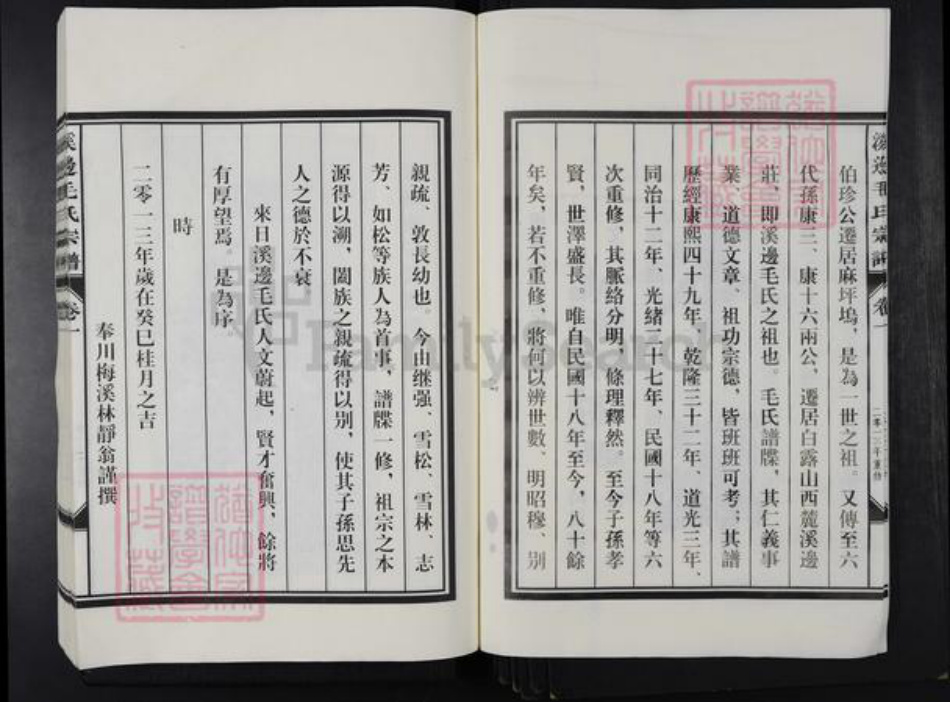 溪邊毛氏宗譜 卷一
二零一三年重修
伯珍公遷居麻坪塢，是為一世之祖。又傳至六
代孫康三、康十六兩公，遷居白露山西麓溪邊
莊，即溪邊毛氏之祖也。毛氏譜牒，其仁義事
業、道德文章、祖功宗德，皆班班可考；其譜
歷經康熙四十九年、乾隆三十二年、道光三年、
同治十二年、光緒二十七年、民國十八年等六
次重修，其脈絡分明，條理釋然。至今子孫孝
賢，世澤盛長。唯自民國十八年至今，八十餘
年矣，若不重修，將何以辨世數、明昭穆、別
親疏、敦長幼也。今由继强、雪松、雪林、志
芳、如松等族人為首事，譜牒一修，祖宗之本
源得以溯，闔族之親疏得以別，使其子孫思先
人之德於不衰
來日溪邊毛氏人文蔚起，賢才奮興，餘將
有厚望焉。是為序
時
二零一三年歲在癸巳桂月之吉
奉川梅溪林靜翁謹撰
溪邊毛氏宗譜 卷一
FamilySearch